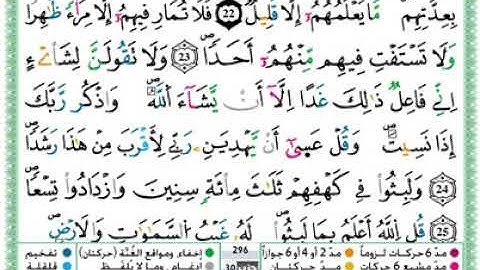 بِعِدَّتِهِم مَّا يَعْلَمُهُمُۥٓ إِلَّا قَلِيلٌ 22 فَلَا تُمَارِ فِيهِمُۥٓ إِلَّا مِرَآءً ظَٰهِرًا
وَلَا تَسْتَفْتِ فِيهِم مِّنْهُمُۥٓ أَحَدًاۖ 23 وَلَا تَقُولَنَّ لِشَاْےْءٍ
إِنِّي فَاعِلٌ ذَٰلِكَ غَدًا إِلَّآ أَنْ يَّشَآءَ اَللَّهُۖ وَاذْكُر رَّبَّكَ
إِذَا نَسِيتَۖ وَقُلْ عَسَىٰٓ أَنْ يَّهْدِيَنِۦ رَبِّي لِأَقْرَبَ مِنْ هَٰذَا رَشَدًاۖ
24 وَلَبِثُوا۟ فِي كَهْفِهِمْ ثَلَٰثَ مِاْئَةٖ سِنِينَ وَازْدَادُوا۟ تِسْعًاۖ
25 قُلِ اللَّهُ أَعْلَمُ بِمَا لَبِثُوا۟ۖ لَهُۥ غَيْبُ السَّمَٰوَٰتِ وَالَارْضِۖ
مدّ 6 حركات لزوماً مدّ 2 أو 4 أو 6 جوازاً 296 إخفاء ومواقع الغُنّة (حركتان) تفخيم
مدّ مشبع 6 حركات مدّ حركتان 30 إدغام، وما لا يُلفظ قلقلة